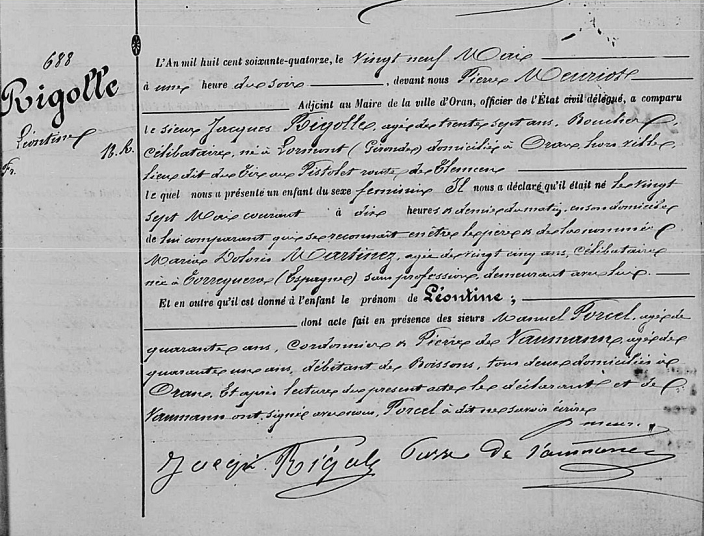 688
Rigolle
Léontine
Fr.
N. R.
L'An mil huit cent soixante-quatorze, le Vingt neuf Mai
à une heure du soir, devant nous Pierre Meuriot
Adjoint au Maire de la ville d'Oran, officier de l'État civil délégué, a comparu
le sieur Jacques Rigolle, âgé de trente sept ans, Boucher,
Célibataire, né à Lormont (Gironde) domicilié à Oran hors ville
lieu dit du Tir au Pistolet route de Tlemcen
le quel nous a présenté un enfant du sexe féminin Il nous a déclaré qu'il était né le vingt
sept Mai courant à dix heures & demie du matin, en son domicile
de lui comparant qui se reconnait en être le père & de la nommée
Maria Dolorès Martinez, agée de vingt cinq ans, Célibataire
née à (Espagne) sans profession, demeurant avec lui.
Et en outre qu'il est donné à l'enfant le prénom de Léontine ;
dont acte fait en présence des sieurs Manuel Porcel, agé de
quarante ans, Cordonnier & Pierre de Vaumann, agé de
quarante un ans, débitant de Boissons, tous deux domiciliés à
Oran, Et après lecture du présent acte le déclarant et de
Vaumann ont signé avec nous, Porcel a dit ne savoir écrire
Rigol de Vaumann